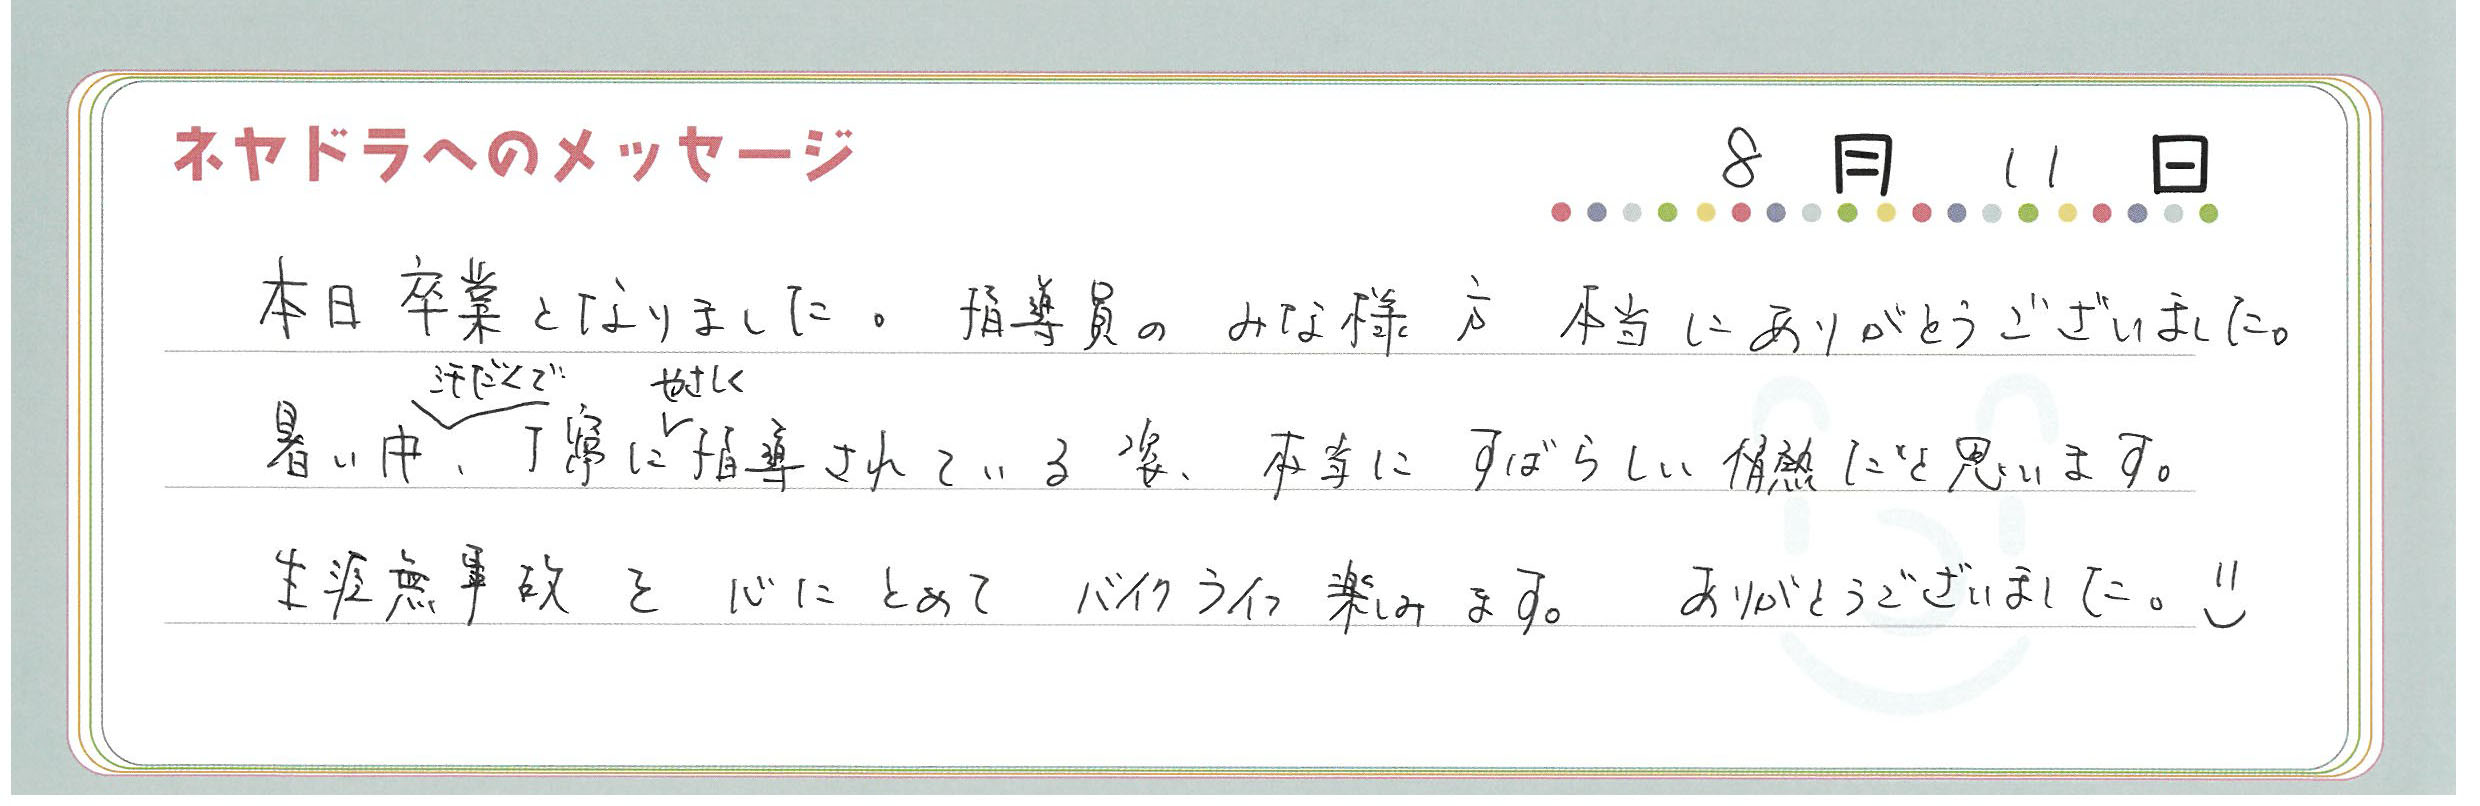 ネヤドラへのメッセージ
8月11日
本日卒業となりました。指導員のみな様方 本当にありがとうございました。
汗だくで やさしく
暑い中、丁寧に指導されている姿、本当にすばらしい情熱だと思います。
生涯無事故を心にとめてバイクライフ楽しみます。 ありがとうございました。